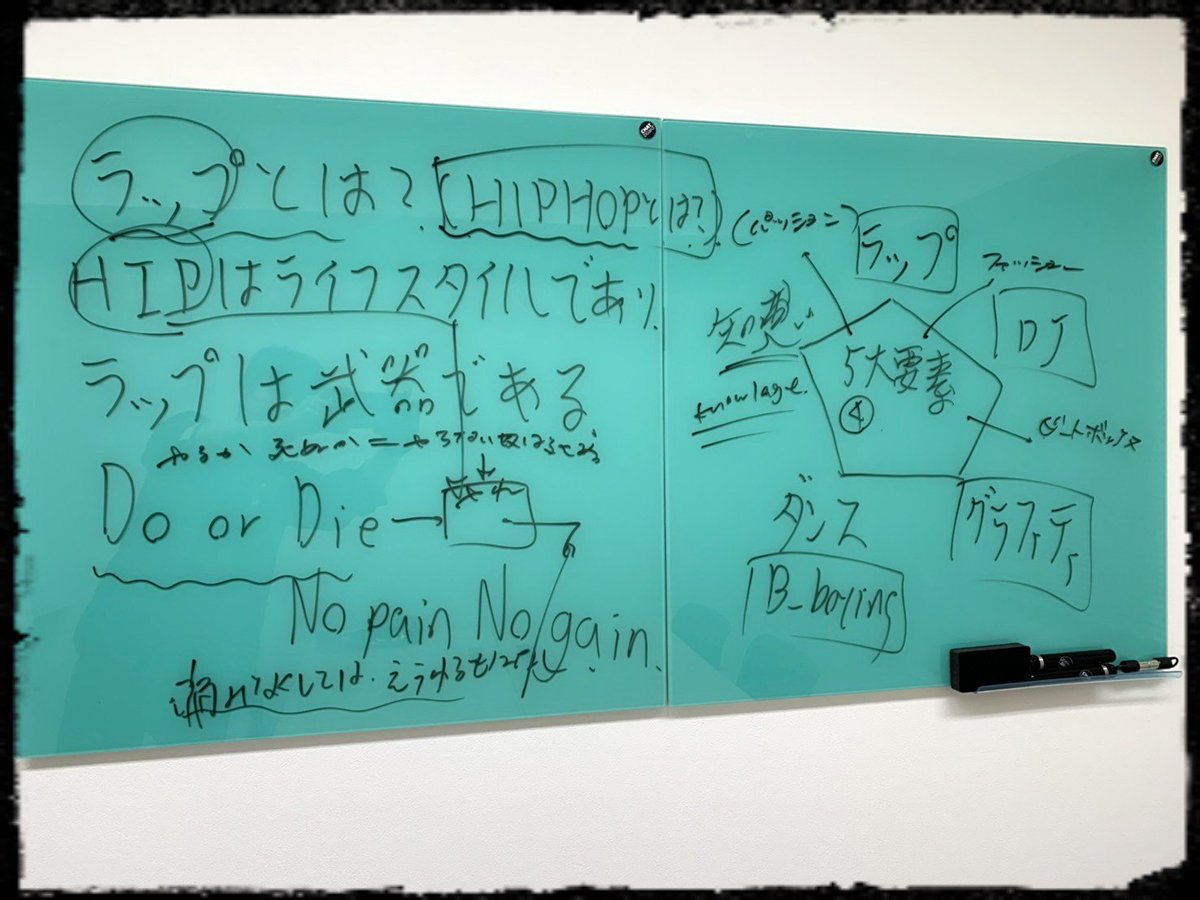 ラップとは? (HIPHOPとは?)
HIPはライフスタイルであり、
ラップは武器である
やるか 死ぬか =
Do or Die →
No pain No gain.
痛みなくしては、えうるもの
(パッション)
ラップ
ファッション
DJ
知覚い
knowlage.
5大要素
④
ビートボックス
ダンス
B-boying
グラフィティ